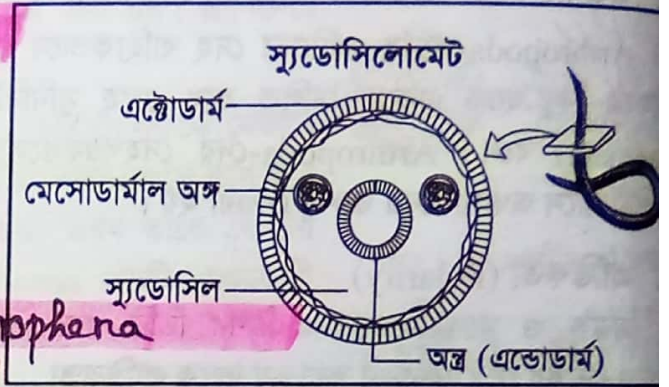 স্যুডোসিলোমেট
এক্টোডার্ম
মেসোডার্মাল অঙ্গ
স্যুডোসিল
অন্ত্র (এন্ডোডার্ম)